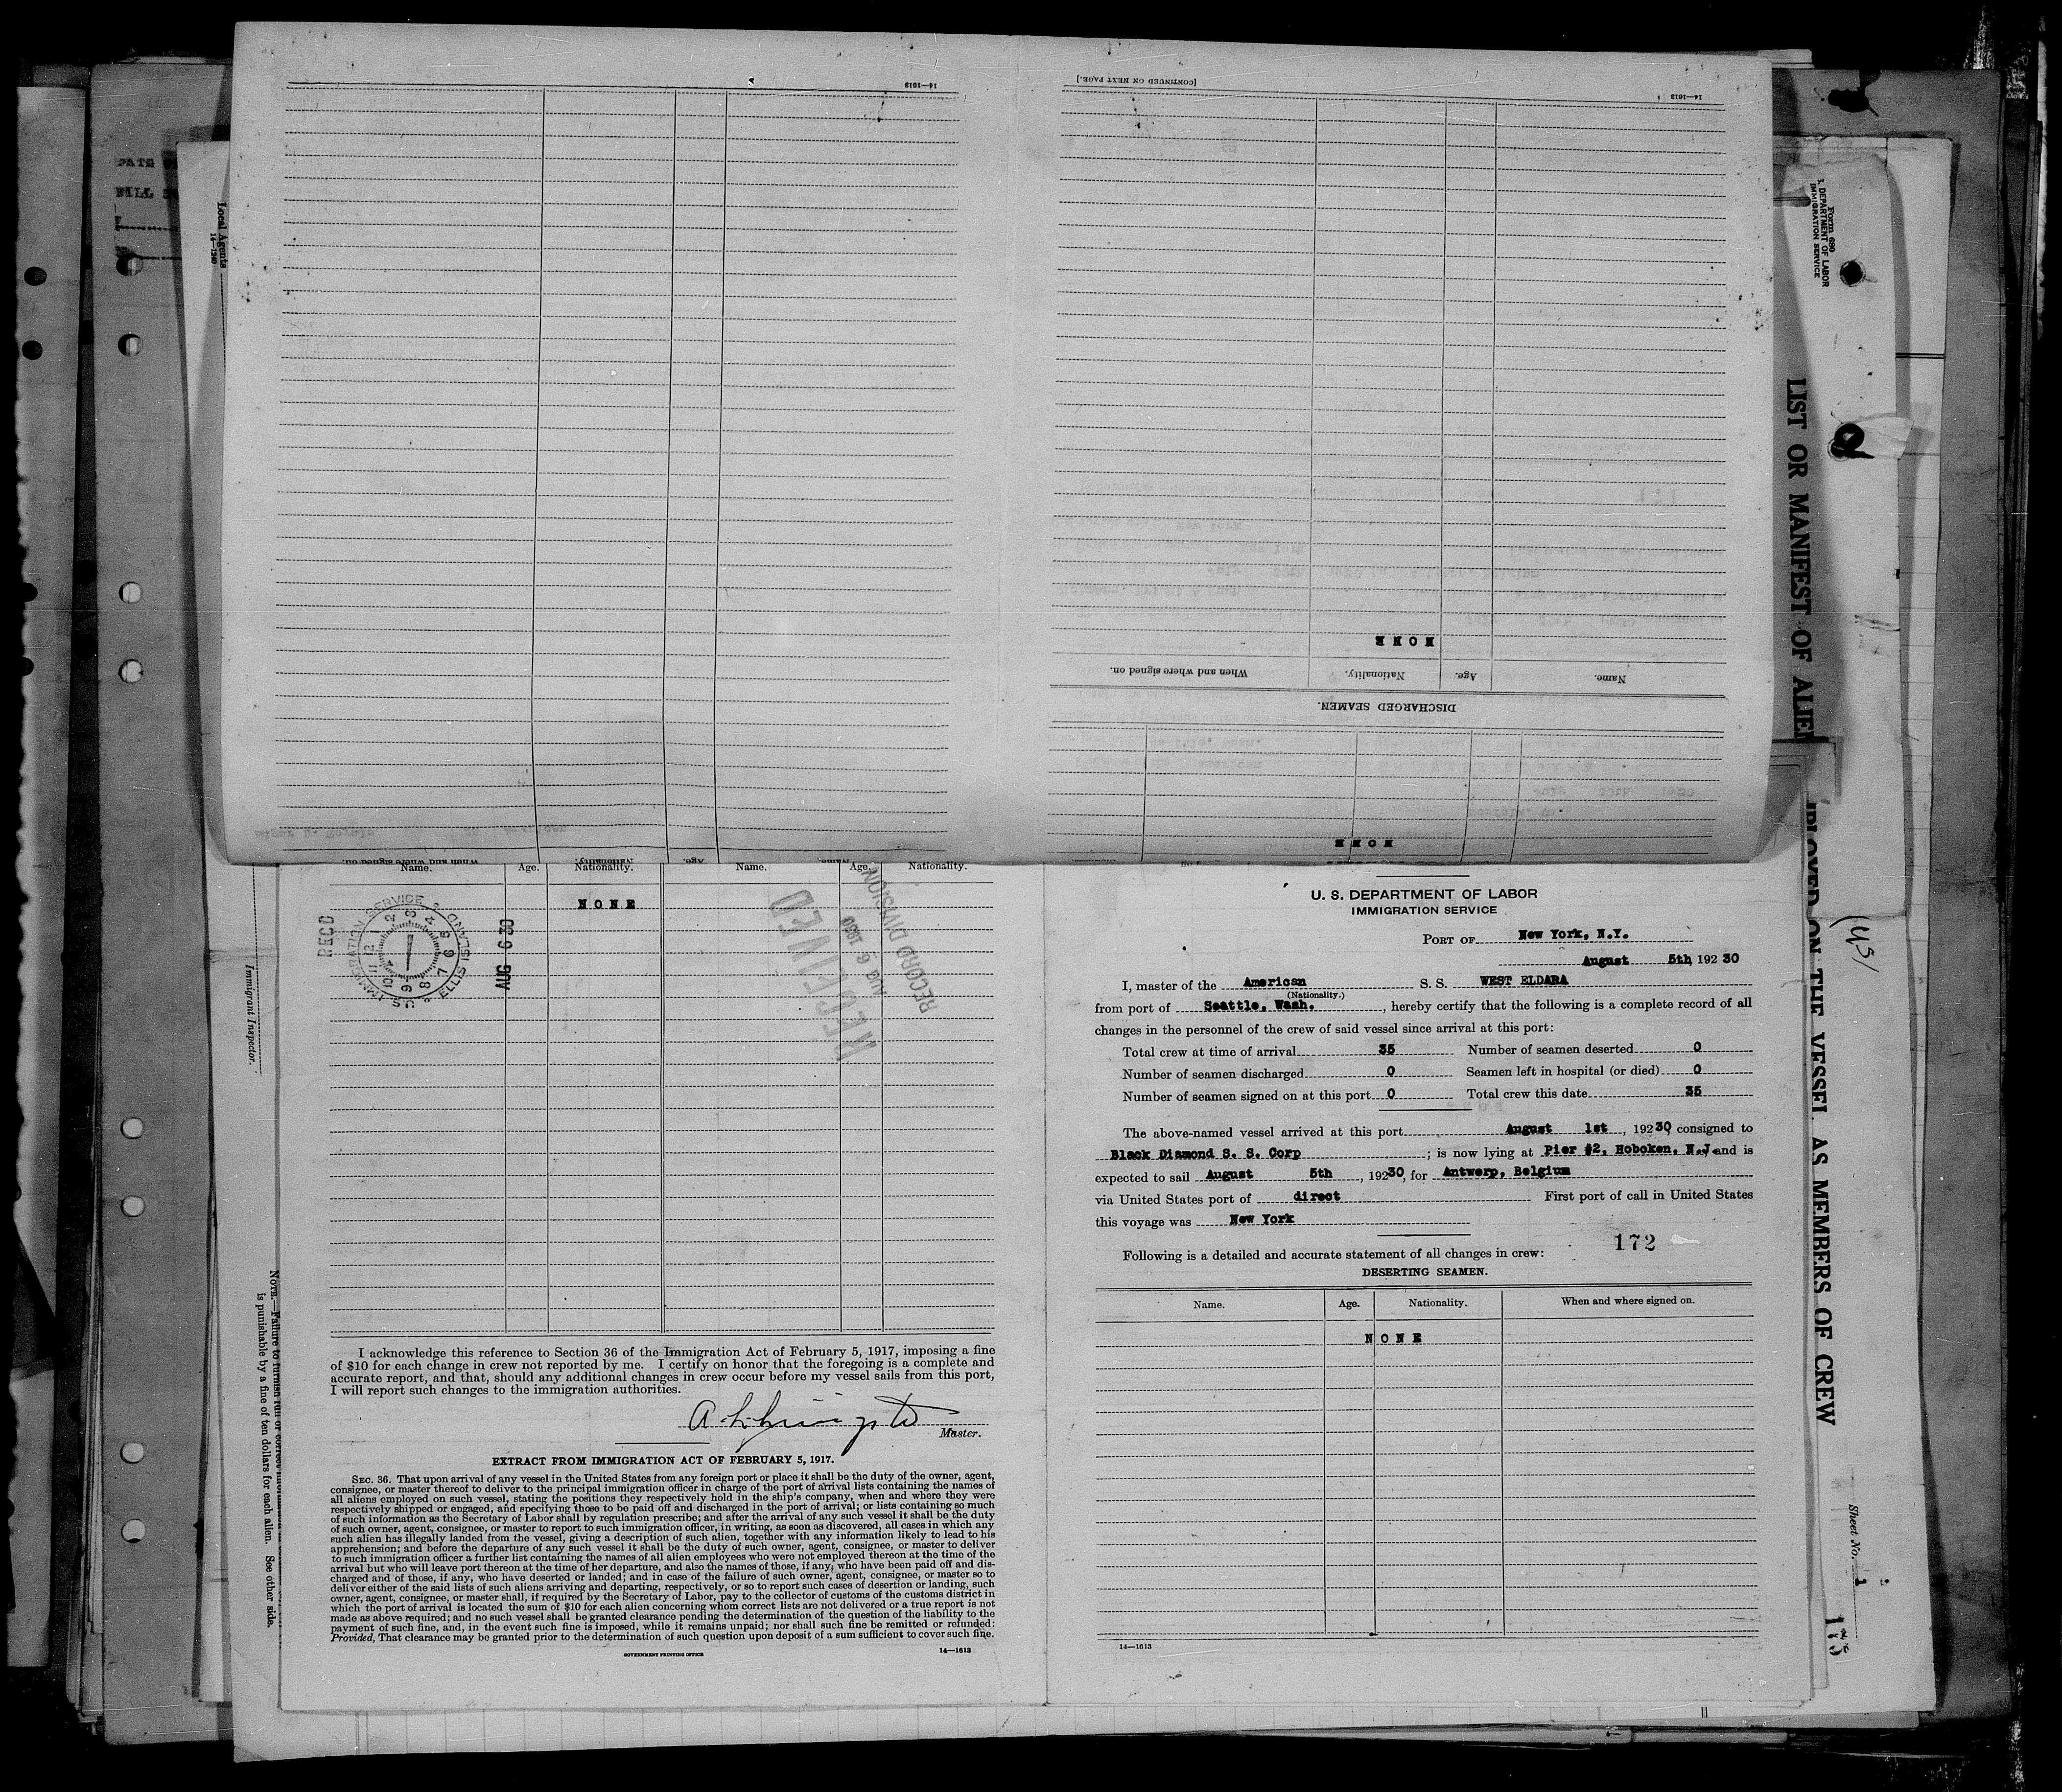 14—1613
[CONTINUED ON NEXT PAGE.]
14—1613
NONE
When and where signed on.
Nationality.
Age.
Name.
DISCHARGED SEAMEN.
NONE
When and where signed on.
Nationality.
Age.
Name.
Local Agents
14—1240
Immigrant Inspector.
NOTE.—Failure to furnish full or correct
is punishable by a fine of ten dollars for each alien. See other side.
Name. Age. Nationality. Name. Age. Nationality.
NONE
REC'D
U.S. IMMIGRATION SERVICE ELLIS ISLAND
1 2 3 4 5 6 7 8 9 10 11 12
AUG 6 30
RECEIVED
AUG 6 1930
RECORD DIVISION
I acknowledge this reference to Section 36 of the Immigration Act of February 5, 1917, imposing a fine
of $10 for each change in crew not reported by me. I certify on honor that the foregoing is a complete and
accurate report, and that, should any additional changes in crew occur before my vessel sails from this port,
I will report such changes to the immigration authorities.
Master.
EXTRACT FROM IMMIGRATION ACT OF FEBRUARY 5, 1917.
SEC. 36. That upon arrival of any vessel in the United States from any foreign port or place it shall be the duty of the owner, agent,
consignee, or master thereof to deliver to the principal immigration officer in charge of the port of arrival lists containing the names of
all aliens employed on such vessel, stating the positions they respectively hold in the ship's company, when and where they were
respectively shipped or engaged, and specifying those to be paid off and discharged in the port of arrival; or lists containing so much
of such information as the Secretary of Labor shall by regulation prescribe; and after the arrival of any such vessel it shall be the duty
of such owner, agent, consignee, or master to report to such immigration officer, in writing, as soon as discovered, all cases in which any
such alien has illegally landed from the vessel, giving a description of such alien, together with any information likely to lead to his
apprehension; and before the departure of any such vessel it shall be the duty of such owner, agent, consignee, or master to deliver
to such immigration officer a further list containing the names of all alien employees who were not employed thereon at the time of the
arrival but who will leave port thereon at the time of her departure, and also the names of those, if any, who have been paid off and dis-
charged and of those, if any, who have deserted or landed; and in case of the failure of such owner, agent, consignee, or master so to
deliver either of the said lists of such aliens arriving and departing, respectively, or so to report such cases of desertion or landing, such
owner, agent, consignee, or master shall, if required by the Secretary of Labor, pay to the collector of customs of the customs district in
which the port of arrival is located the sum of $10 for each alien concerning whom correct lists are not delivered or a true report is not
made as above required; and no such vessel shall be granted clearance pending the determination of the question of the liability to the
payment of such fine, and, in the event such fine is imposed, while it remains unpaid; nor shall such fine be remitted or refunded:
Provided, That clearance may be granted prior to the determination of such question upon deposit of a sum sufficient to cover such fine.
GOVERNMENT PRINTING OFFICE
14—1613
U. S. DEPARTMENT OF LABOR
IMMIGRATION SERVICE
PORT OF New York, N.Y.
August 5th, 192 30
I, master of the American S. S. WEST ELDARA
(Nationality.)
from port of Seattle, Wash., hereby certify that the following is a complete record of all
changes in the personnel of the crew of said vessel since arrival at this port:
Total crew at time of arrival 35 Number of seamen deserted 0
Number of seamen discharged 0 Seamen left in hospital (or died) 0
Number of seamen signed on at this port 0 Total crew this date 35
The above-named vessel arrived at this port August 1st, 192 30 consigned to
Black Diamond S. S. Corp; is now lying at Pier #2, Hoboken, N.J. and is
expected to sail August 5th, 192 30, for Antwerp, Belgium
via United States port of direct First port of call in United States
this voyage was New York
172
Following is a detailed and accurate statement of all changes in crew:
DESERTING SEAMEN.
Name. Age. Nationality. When and where signed on.
NONE
14—1613
Form 680
S. DEPARTMENT OF LABOR
IMMIGRATION SERVICE
LIST OR MANIFEST OF ALIEN
EMPLOYED ON THE VESSEL AS MEMBERS OF CREW
Sheet No. 1
175